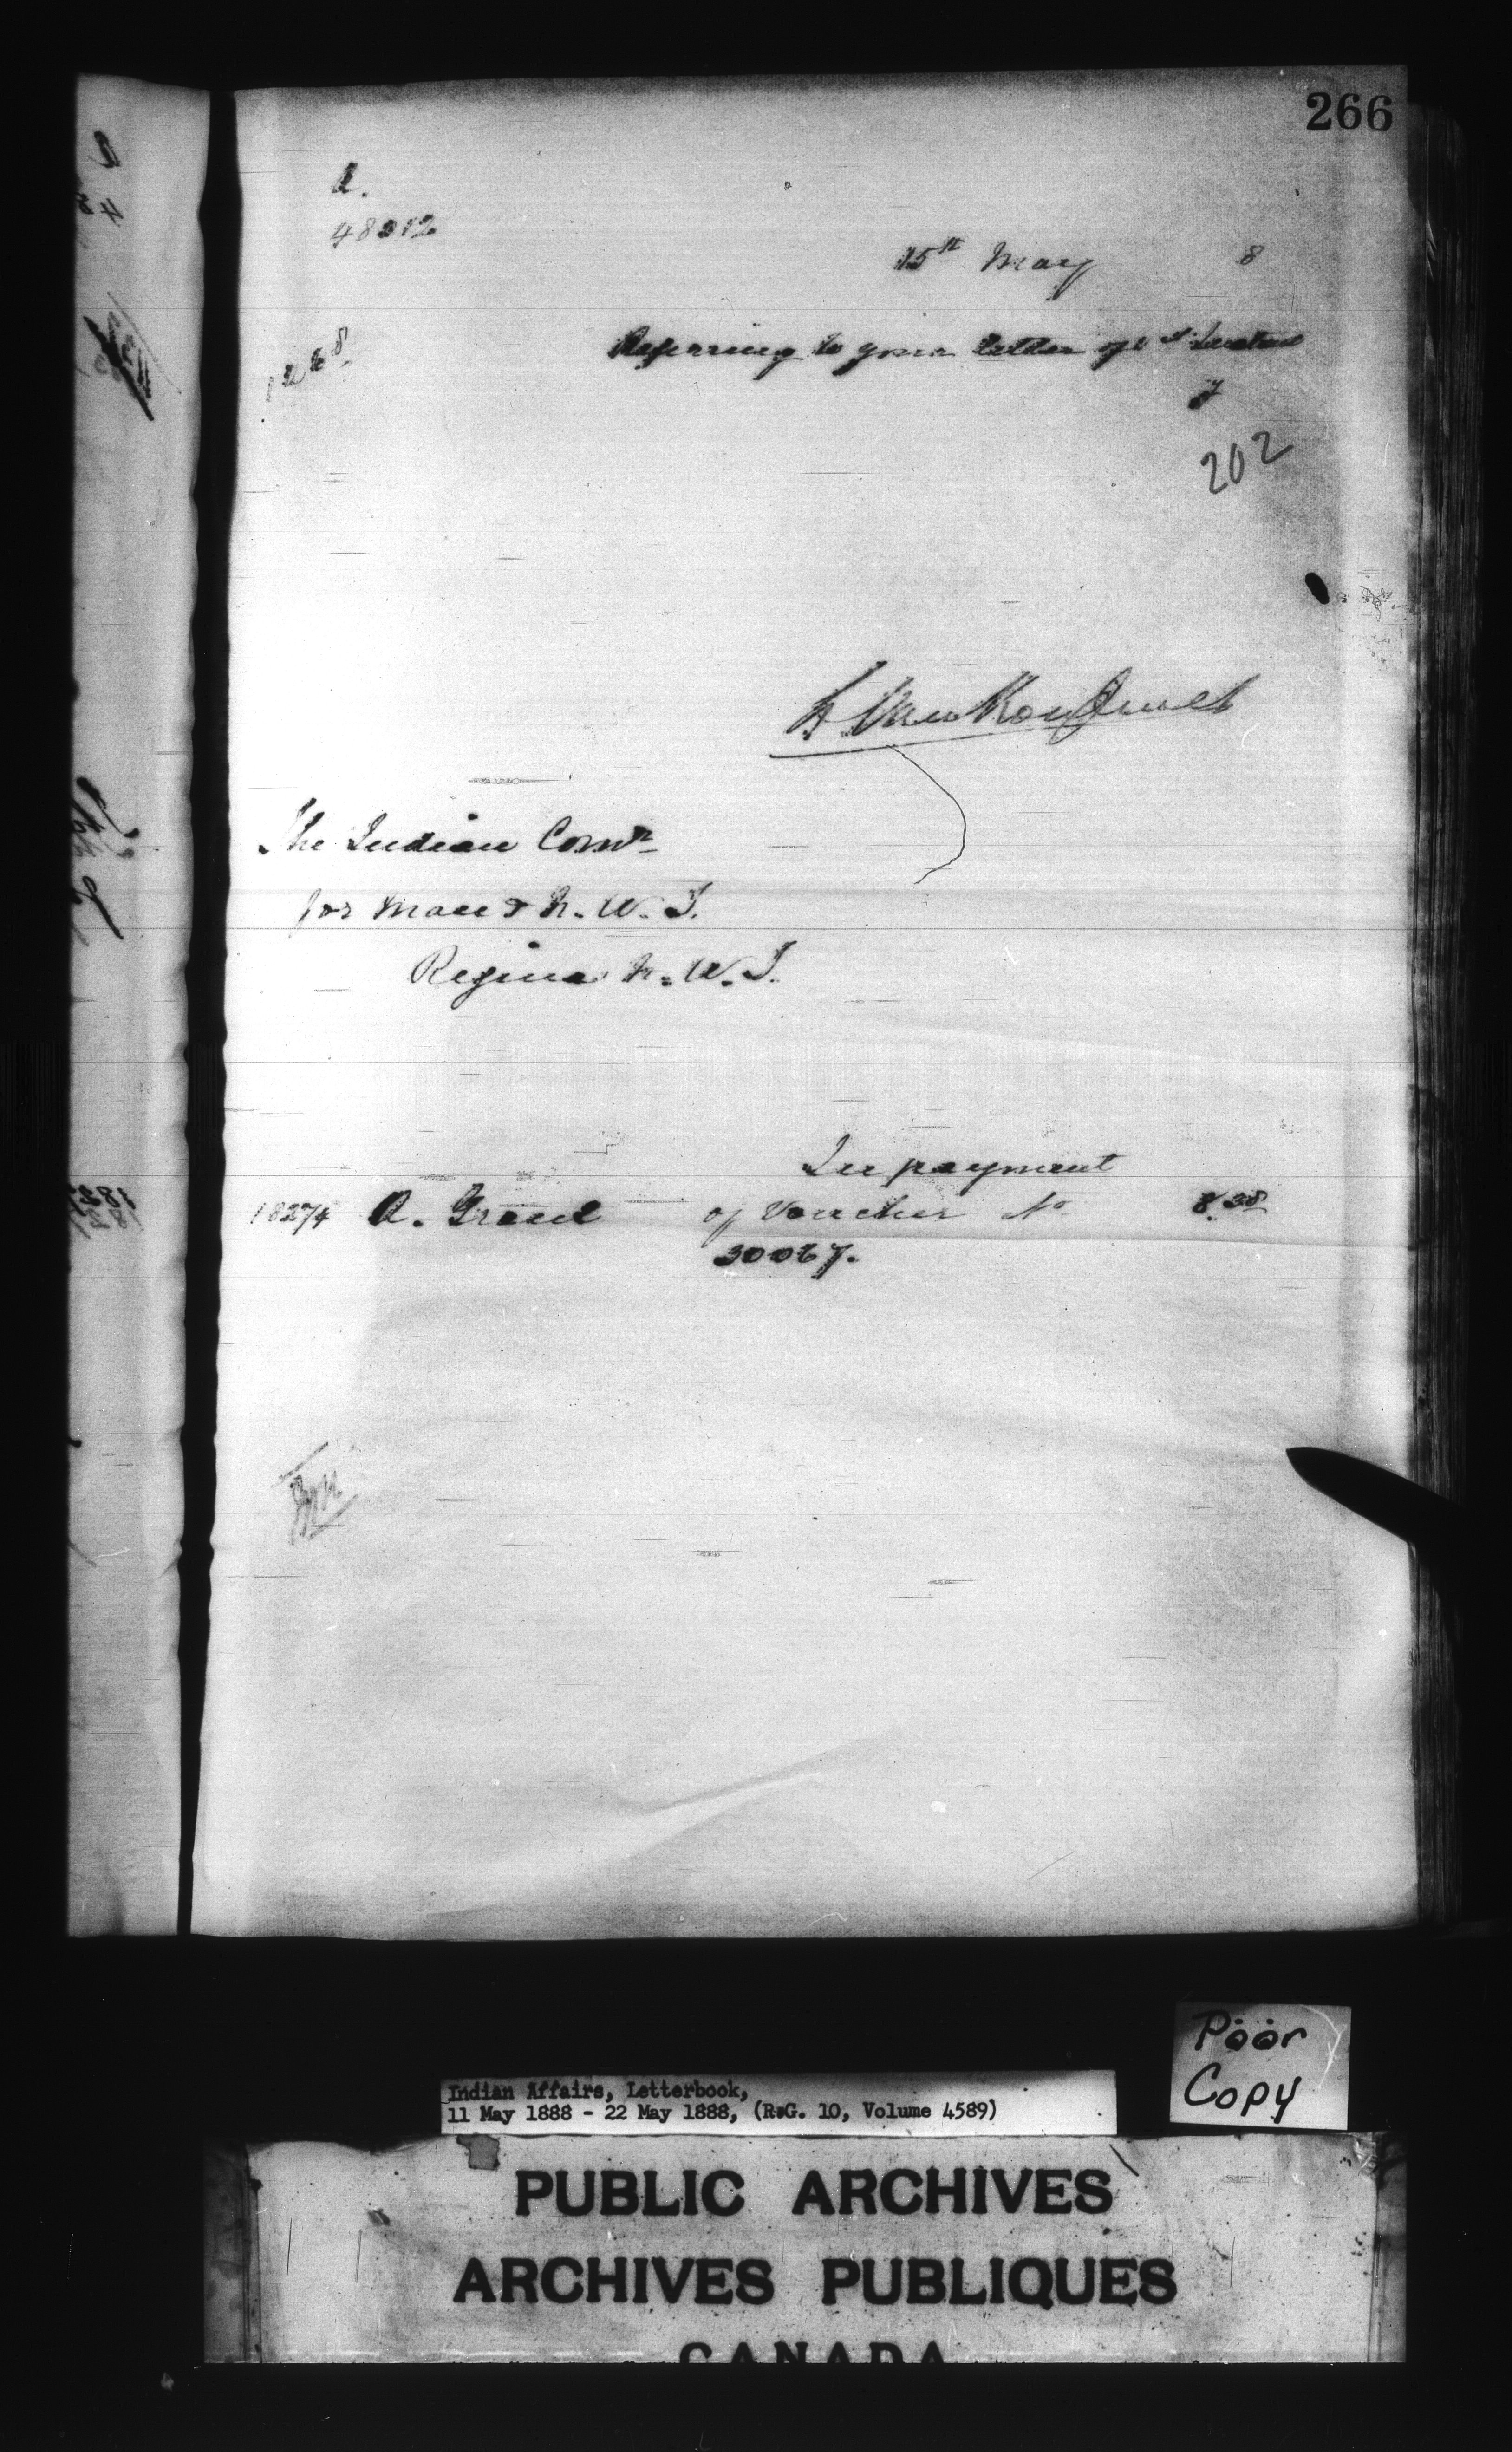 266
A.
48012
15th May 8
1268
Referring to your letter of
7
202
L. VanKoughnet
The Indian Comr
for Man & N. W. T.
Regina N. W. T.
In payment
18274 A. Grant of Voucher No 8.38
30067.
Poor
Copy
Indian Affairs, Letterbook,
11 May 1888 - 22 May 1888, (R.G. 10, Volume 4589)
PUBLIC ARCHIVES
ARCHIVES PUBLIQUES
CANADA